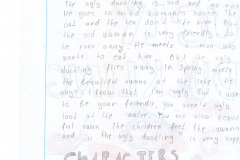 The ugly duckling is sad and go away
He goes to an old woman's house. The
cat and the hen don't like him.
The old woman is very friendly. So
he run away. He meets a man who
wants to eat him. But the ugly
duckling flies away. In Spring meets
the beautiful swans at the lake. He
says: I know that I'm ugly. But want
to be your friends. You aren't ugly
look at the water. You are also beauti-
ful swan. The children feed the swans
and is the ugly duckling is very happy.
CHARACTERS